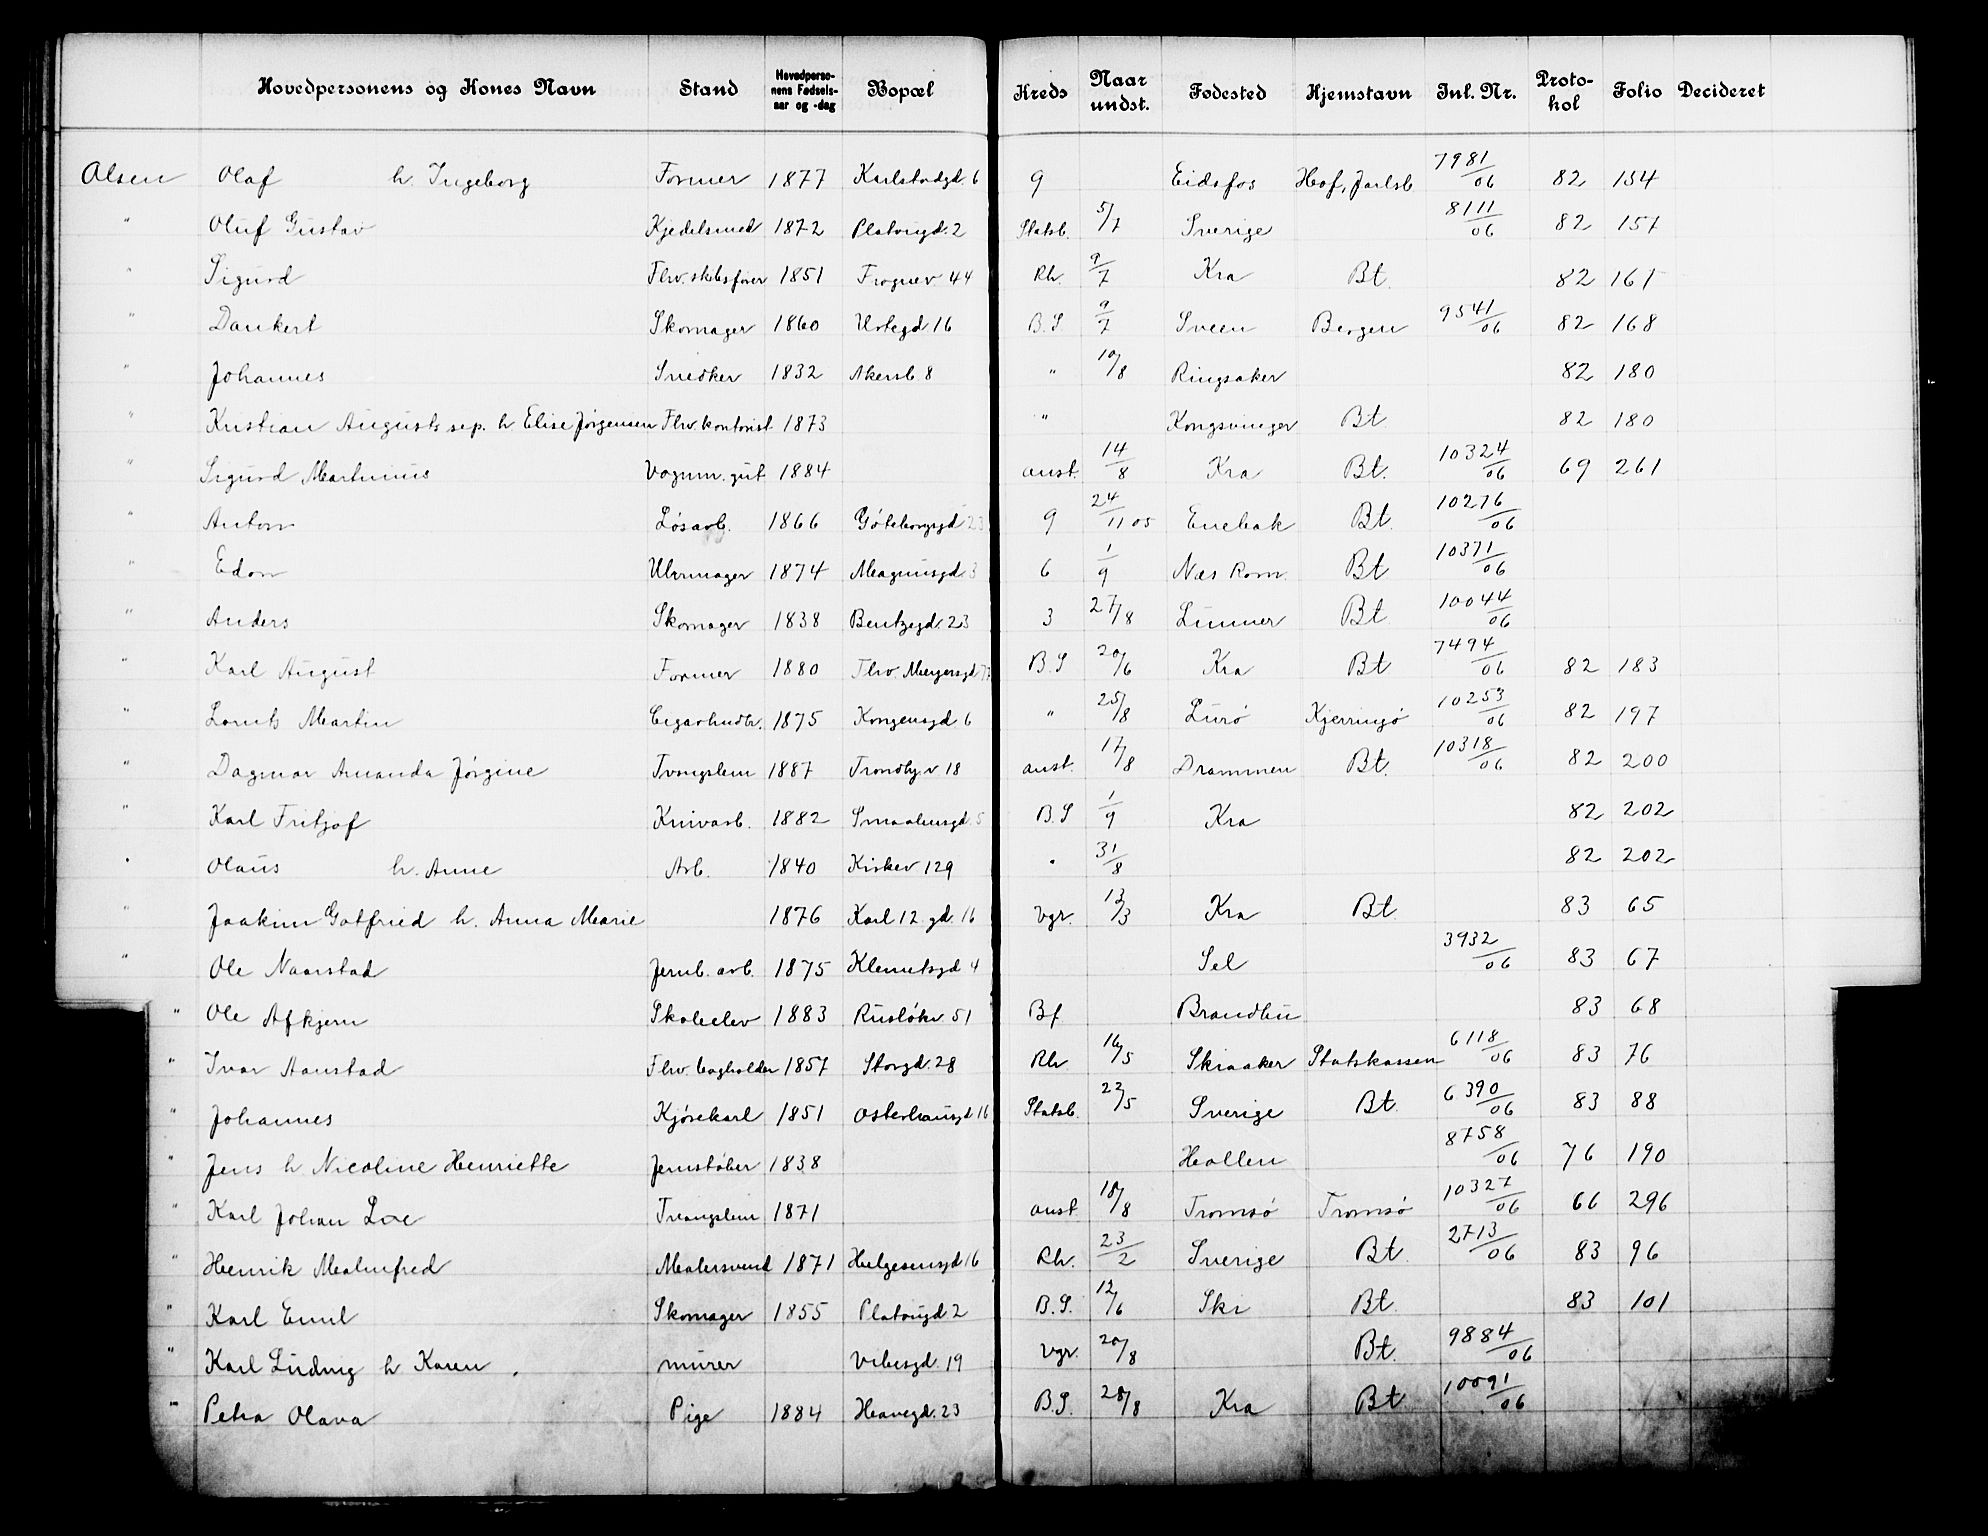 Hovedpersonens og Kones Navn Stand Hovedpersonens Fødselsaar og -dag Bopæl Kreds Naar undst. Fødested Hjemstavn Inl. Nr. Protokol Folio Decideret
Olsen Olaf h. Ingeborg Former 1877 Karlstadgd. 6 9 Eidsfos Hof, Jarlsb 7981/06 82 154
" Oluf Gustav Kjedelsmed 1872 Platougd. 2 Statsb. 5/7 Sverige 8111/06 82 157
" Sigurd Fhv. skibsfører 1851 Frognerv 44 Rh. 9/7 Kra Bt. 82 161
" Dankert Skomager 1860 Urtegd 16 B.S 9/7 Sveen Bergen 9541/06 82 168
" Johannes Snedker 1832 Akersb. 8 " 10/8 Ringsaker 82 180
" Kristian August sep. h Elise Jørgensen Fhv. kontorist 1873 " Kongsvinger Bt. 82 180
" Sigurd Martinius Vognm. gut 1884 anst. 14/8 Kra Bt. 10324/06 69 261
" Anton Løsarb. 1866 Göteborggd 23 9 24/11 05 Enebak Bt. 10276/06
" Edon Uhrmager 1874 Magnusgd. 3 6 1/9 Næs Rom. Bt 10371/06
" Anders Skomager 1838 Bentzegd. 23 3 27/8 Lunner Bt 10044/06
" Karl August Former 1880 Thv. Meyersgd 77 B.S 20/6 Kra Bt 7494/06 82 183
" Lorents Martin Cigarhndlr. 1875 Kongensgd. 6 " 25/8 Lurö Kjerringö 10253/06 82 197
" Dagmar Amanda Jørgine Tvangslem 1887 Trondhj.v 18 anst. 17/8 Drammen Bt. 10318/06 82 200
" Karl Fritjof Knivarb. 1882 Smaalensgd. 5 B.S 1/9 Kra 82 202
" Olaus h. Anne Arb. 1840 Kirkev 129 " 31/8 82 202
" Joakim Gotfried h. Anna Marie 1876 Karl 12 gd. 16 Vgr. 13/3 Kra Bt. 83 65
" Ole Naarstad Jernb. arb. 1875 Klemetsgd 4 Sel 3932/06 83 67
" Ole Afkjern Skoleelev 1883 Ruseløkv 51 Bf Brandbu 83 68
" Ivar Aanstad Fhv. bogholder 1857 Storgd. 28 Rh 16/5 Skiaaker Statskassen 6118/06 83 76
" Johannes Kjørekarl 1851 Osterhausgd 16 Statsb. 22/5 Sverige Bt. 6390/06 83 88
" Jens h Nicoline Henriette Jernstøber 1838 Hollen 8758/06 76 190
" Karl Johan Loe Tvangslem 1871 anst. 18/8 Tromsö Tromsö 10327/06 66 296
" Henrik Malmfred Malersvend 1871 Helgesensgd 16 Rh. 23/2 Sverige Bt. 2713/06 83 96
" Karl Emil Skomager 1855 Platougd 2 B.S. 12/6 Ski Bt. 83 101
" Karl Ludvig h Karen murer Vibesgd. 19 Vgr. 20/8 Bt. 9884/06
" Petra Olava Pige 1884 Havegd. 23 B.S. 28/8 Kra Bt 10091/06